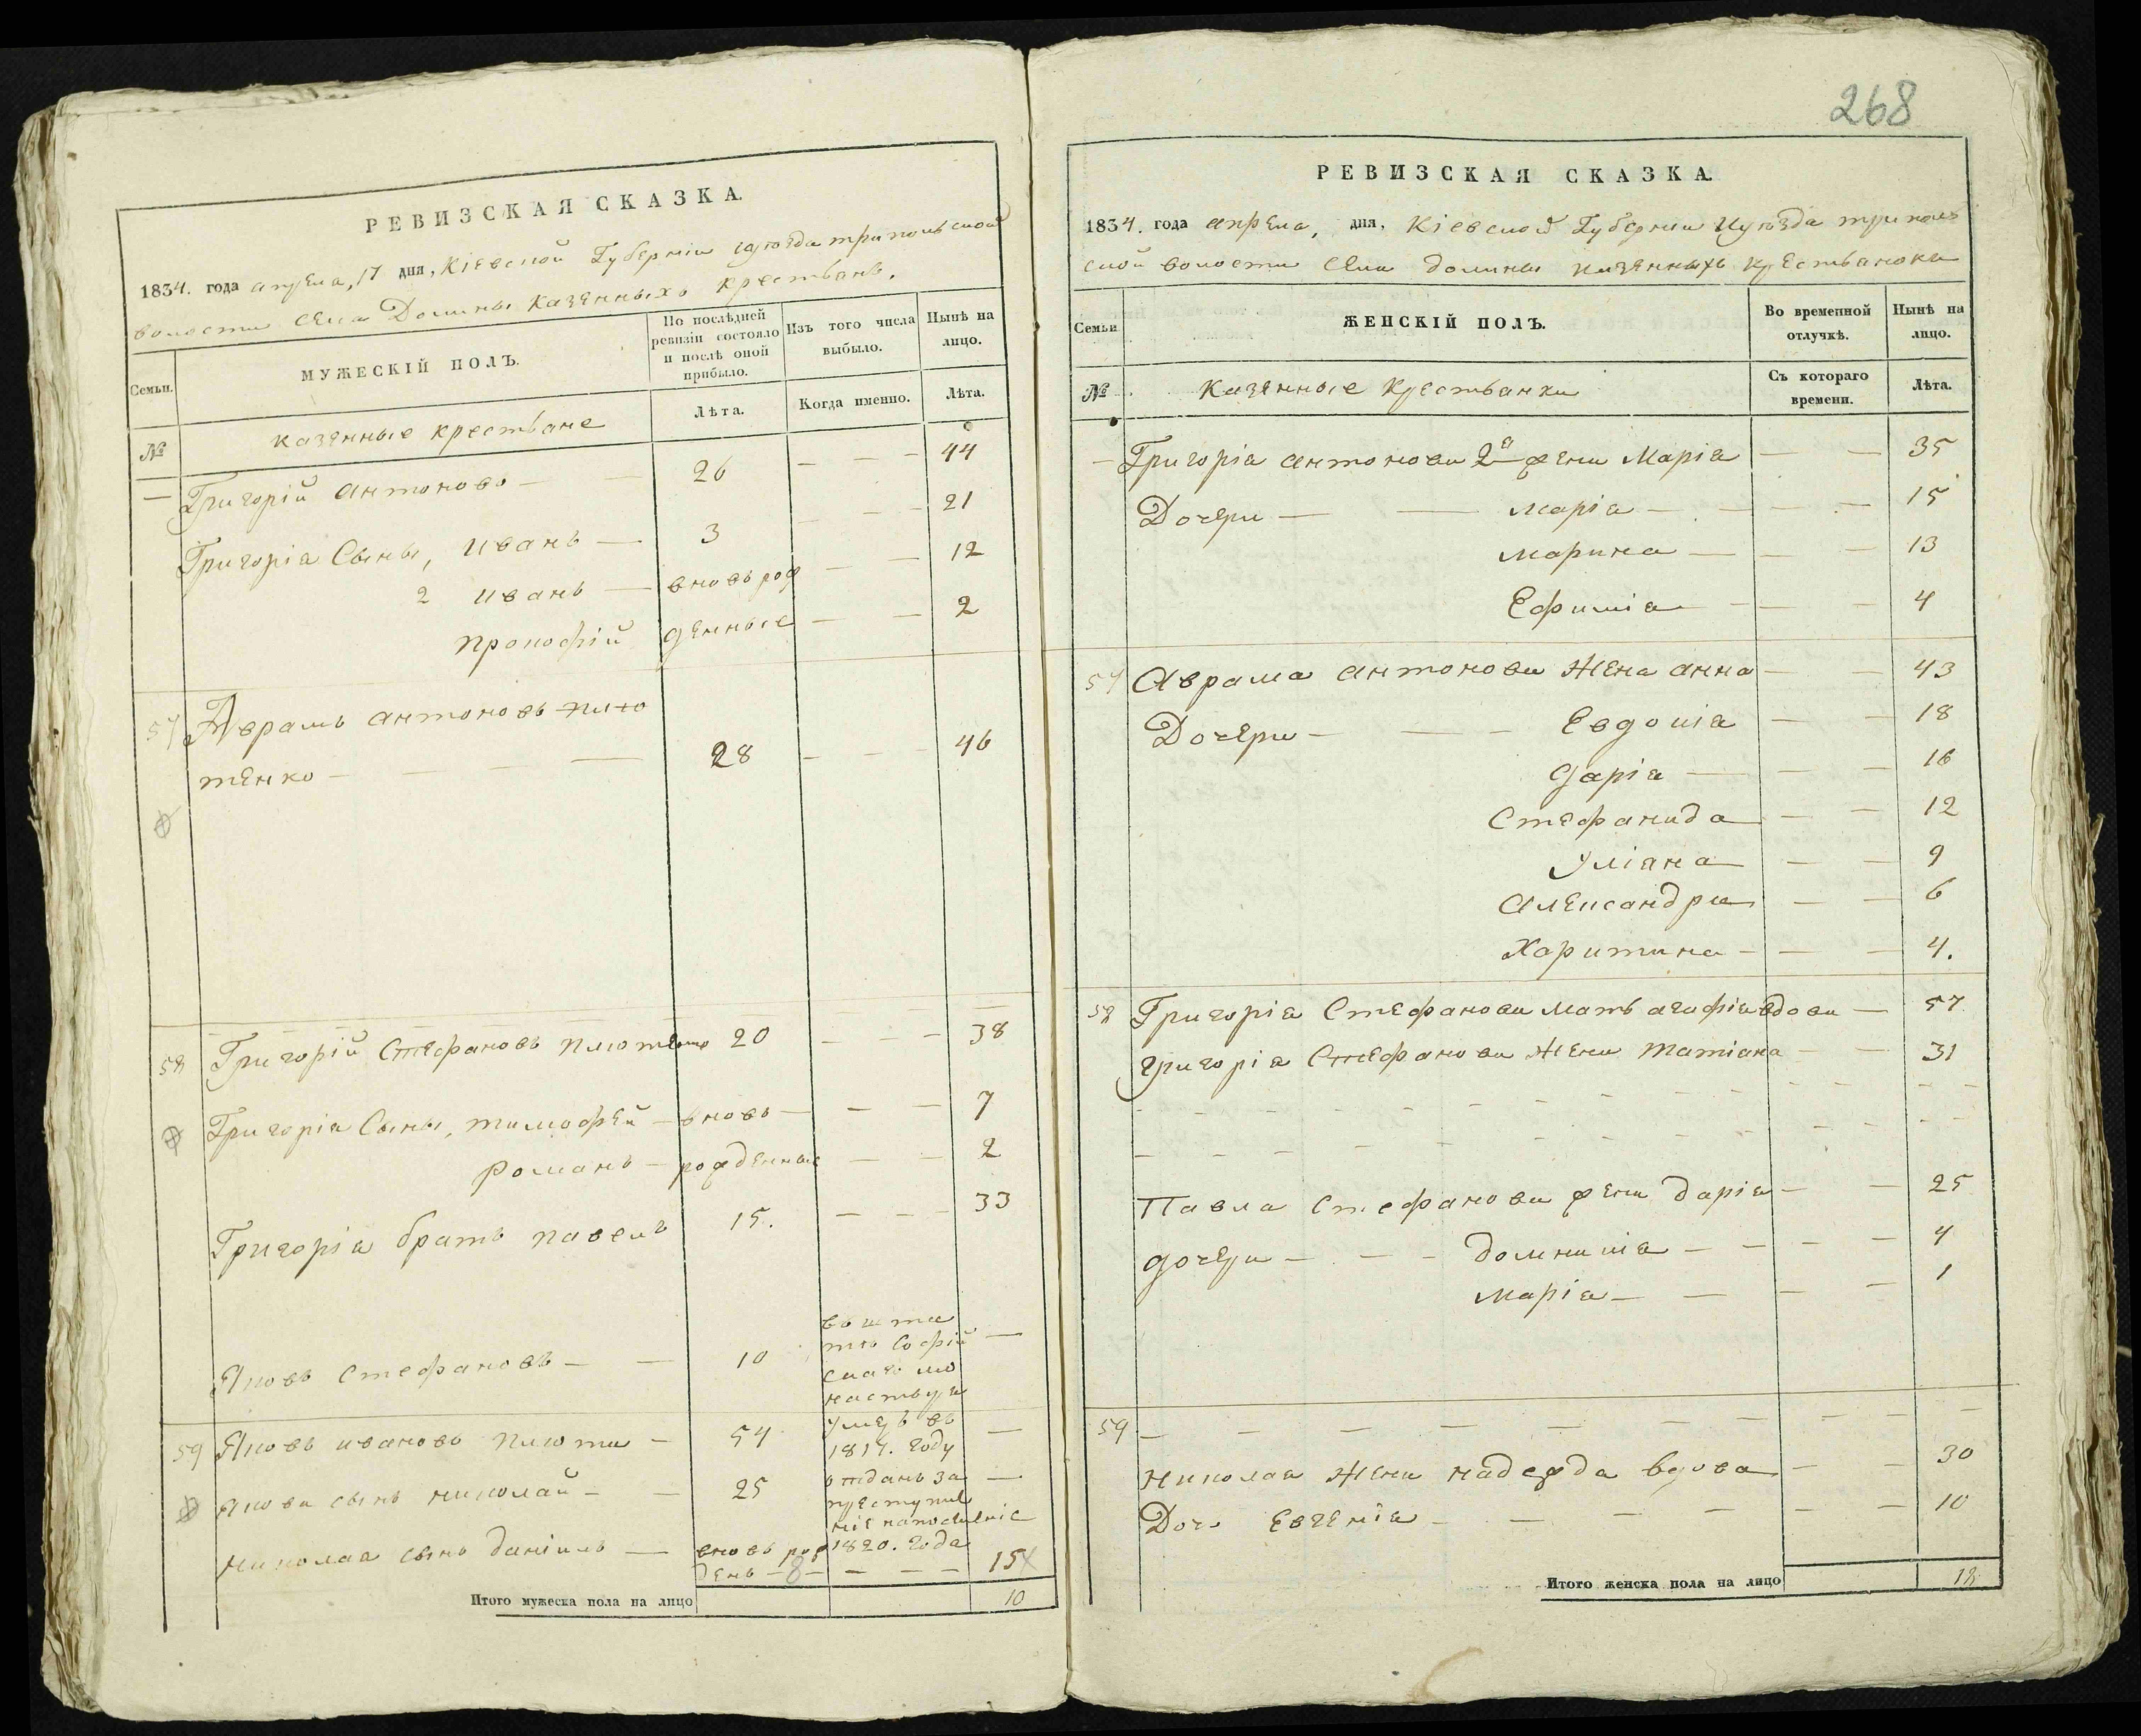 268
РЕВИЗСКАЯ СКАЗКА.
1834. года апреля, 17 дня, Кіевской Губерніи и уѣзда трипольской
волости Села Долины Казенныхъ крестьянъ.
Семьи.
МУЖЕСКІЙ ПОЛЪ.
По послѣдней
ревизіи состояло
и послѣ оной
прибыло.
Изъ того числа
выбыло.
Нынѣ на
лицо.
№
казенные крестьяне
Лѣта.
Когда именно.
Лѣта.
— Григорій антоновъ — — 26 — — — 44
Григорія Сыны, иванъ — 3 — — — 21
2 иванъ — вновь рож — — 12
прокофій денные — — 2
57 Аврамъ антоновъ плю
тенко — — — — 28 — — — 46
58 Григорій Стефановъ плютенко 20 — — — 38
Григорія Сыны, тимофей — вновь — — — 7
романъ — рожденные — — 2
Григорія братъ павелъ 15. — — — 33
Яковъ Стефановъ — — 10
въ шта
тѣ Софій —
скаго мо
настыря
59 Яковъ ивановъ плюта — 54
умеръ въ —
1817. году
Якова сынъ николай — — 25
отданъ за —
преступле
ніе на поселеніе
1820. года
николая сынъ даніилъ — вновь рож
денъ — 8 — — — — 15
Итого мужеска пола на лицо 10
РЕВИЗСКАЯ СКАЗКА.
1834. года апреля, дня, Кіевской Губерніи и уѣзда триполь
ской волости Села долины казенныхъ крестьянокъ
Семьи
ЖЕНСКІЙ ПОЛЪ.
Во временной
отлучкѣ.
Нынѣ на
лицо.
№
Казенные Крестьянки
Съ котораго
времени.
Лѣта.
— Григорія антонова 2я жена Марія — — 35
Дочери — — марія — — — — 15
марина — — — 13
Ефимія — — — 4
57 Аврама антонова Жена анна — — 43
Дочери — — — Евдокія — — 18
дарія — — — 16
Стефанида — — 12
Уліана — — 9
Александра — — 6
Харитина — — — 4.
58 Григорія Стефанова мать агафія вдова — 57
григорія Стефанова Жена татіана — — 31
Павла Стефанова жена дарія — — 25
дочери — — — домникія — — — — 4
марія — — — — 1
59 — — — — — — — — — —
николая Жена надежда вдова — — 30
Дочь Евгенія — — — — — 10
Итого женска пола на лицо 18